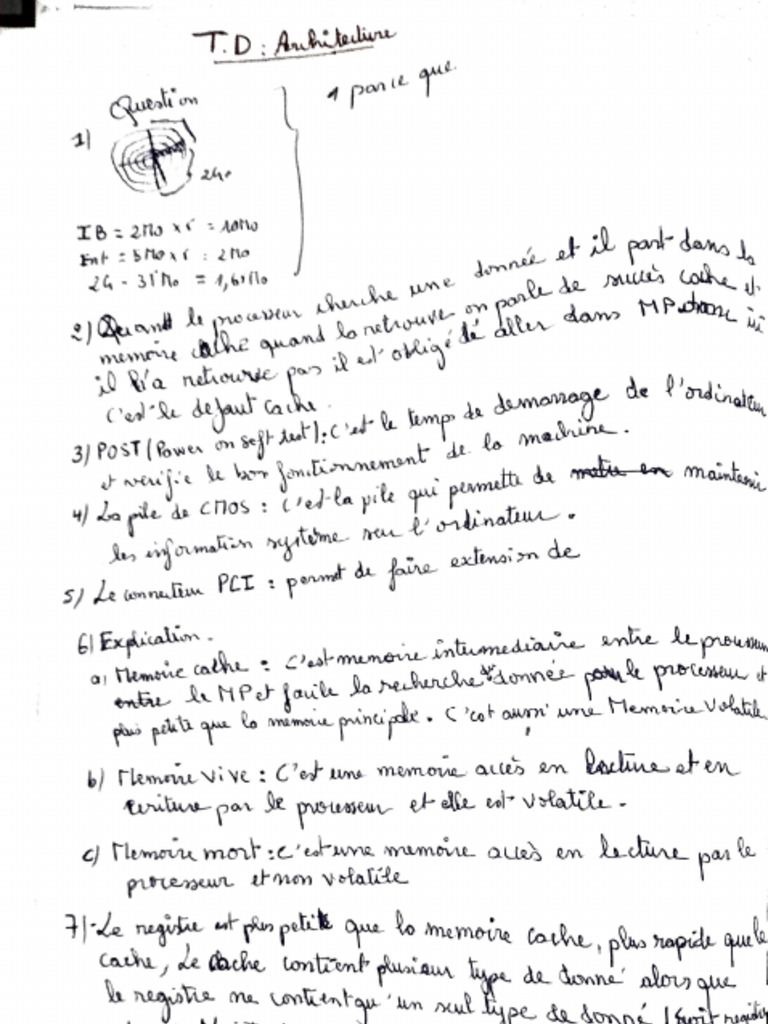 T.D : Architecture
Question
1 parce que
1)
2G.
IB = 2Mo x 5 = 10Mo
Ent = 5Mo x 5 : 2Mo
2G - 35Mo = 1,65Mo
2) Quand le processeur cherche une donnée et il part dans la
memoire cache quand la retrouve on parle de succès cache et
il l'a retrouvée pas il est obligé de aller dans MP
c'est le defaut cache.
3) POST (Power on seft test) : C'est le temps de demarrage de l'ordinateur
et vérifie le bon fonctionnement de la machine.
4) La pile de CMOS : C'est la pile qui permette de maintenir
les information systeme sur l'ordinateur.
5) Le connecteur PCI : permet de faire extension de
6) Explication.
a) Memoire cache : C'est memoire intermediaire entre le processeur
entre la MP et facile la recherche de donnée pour le processeur et
plus petite que la memoire principale. C'est aussi une Memoire Volatile
b) Memoire vive : C'est une memoire accès en lecture et en
ecriture par le processeur et elle est volatile.
c) Memoire mort : c'est une memoire accès en lecture par le
processeur et non volatile
7) - Le registre est plus petite que la memoire cache, plus rapide que le
cache, Le cache contient plusieur type de donné alors que
le registre ne contient qu'un seul type de donné